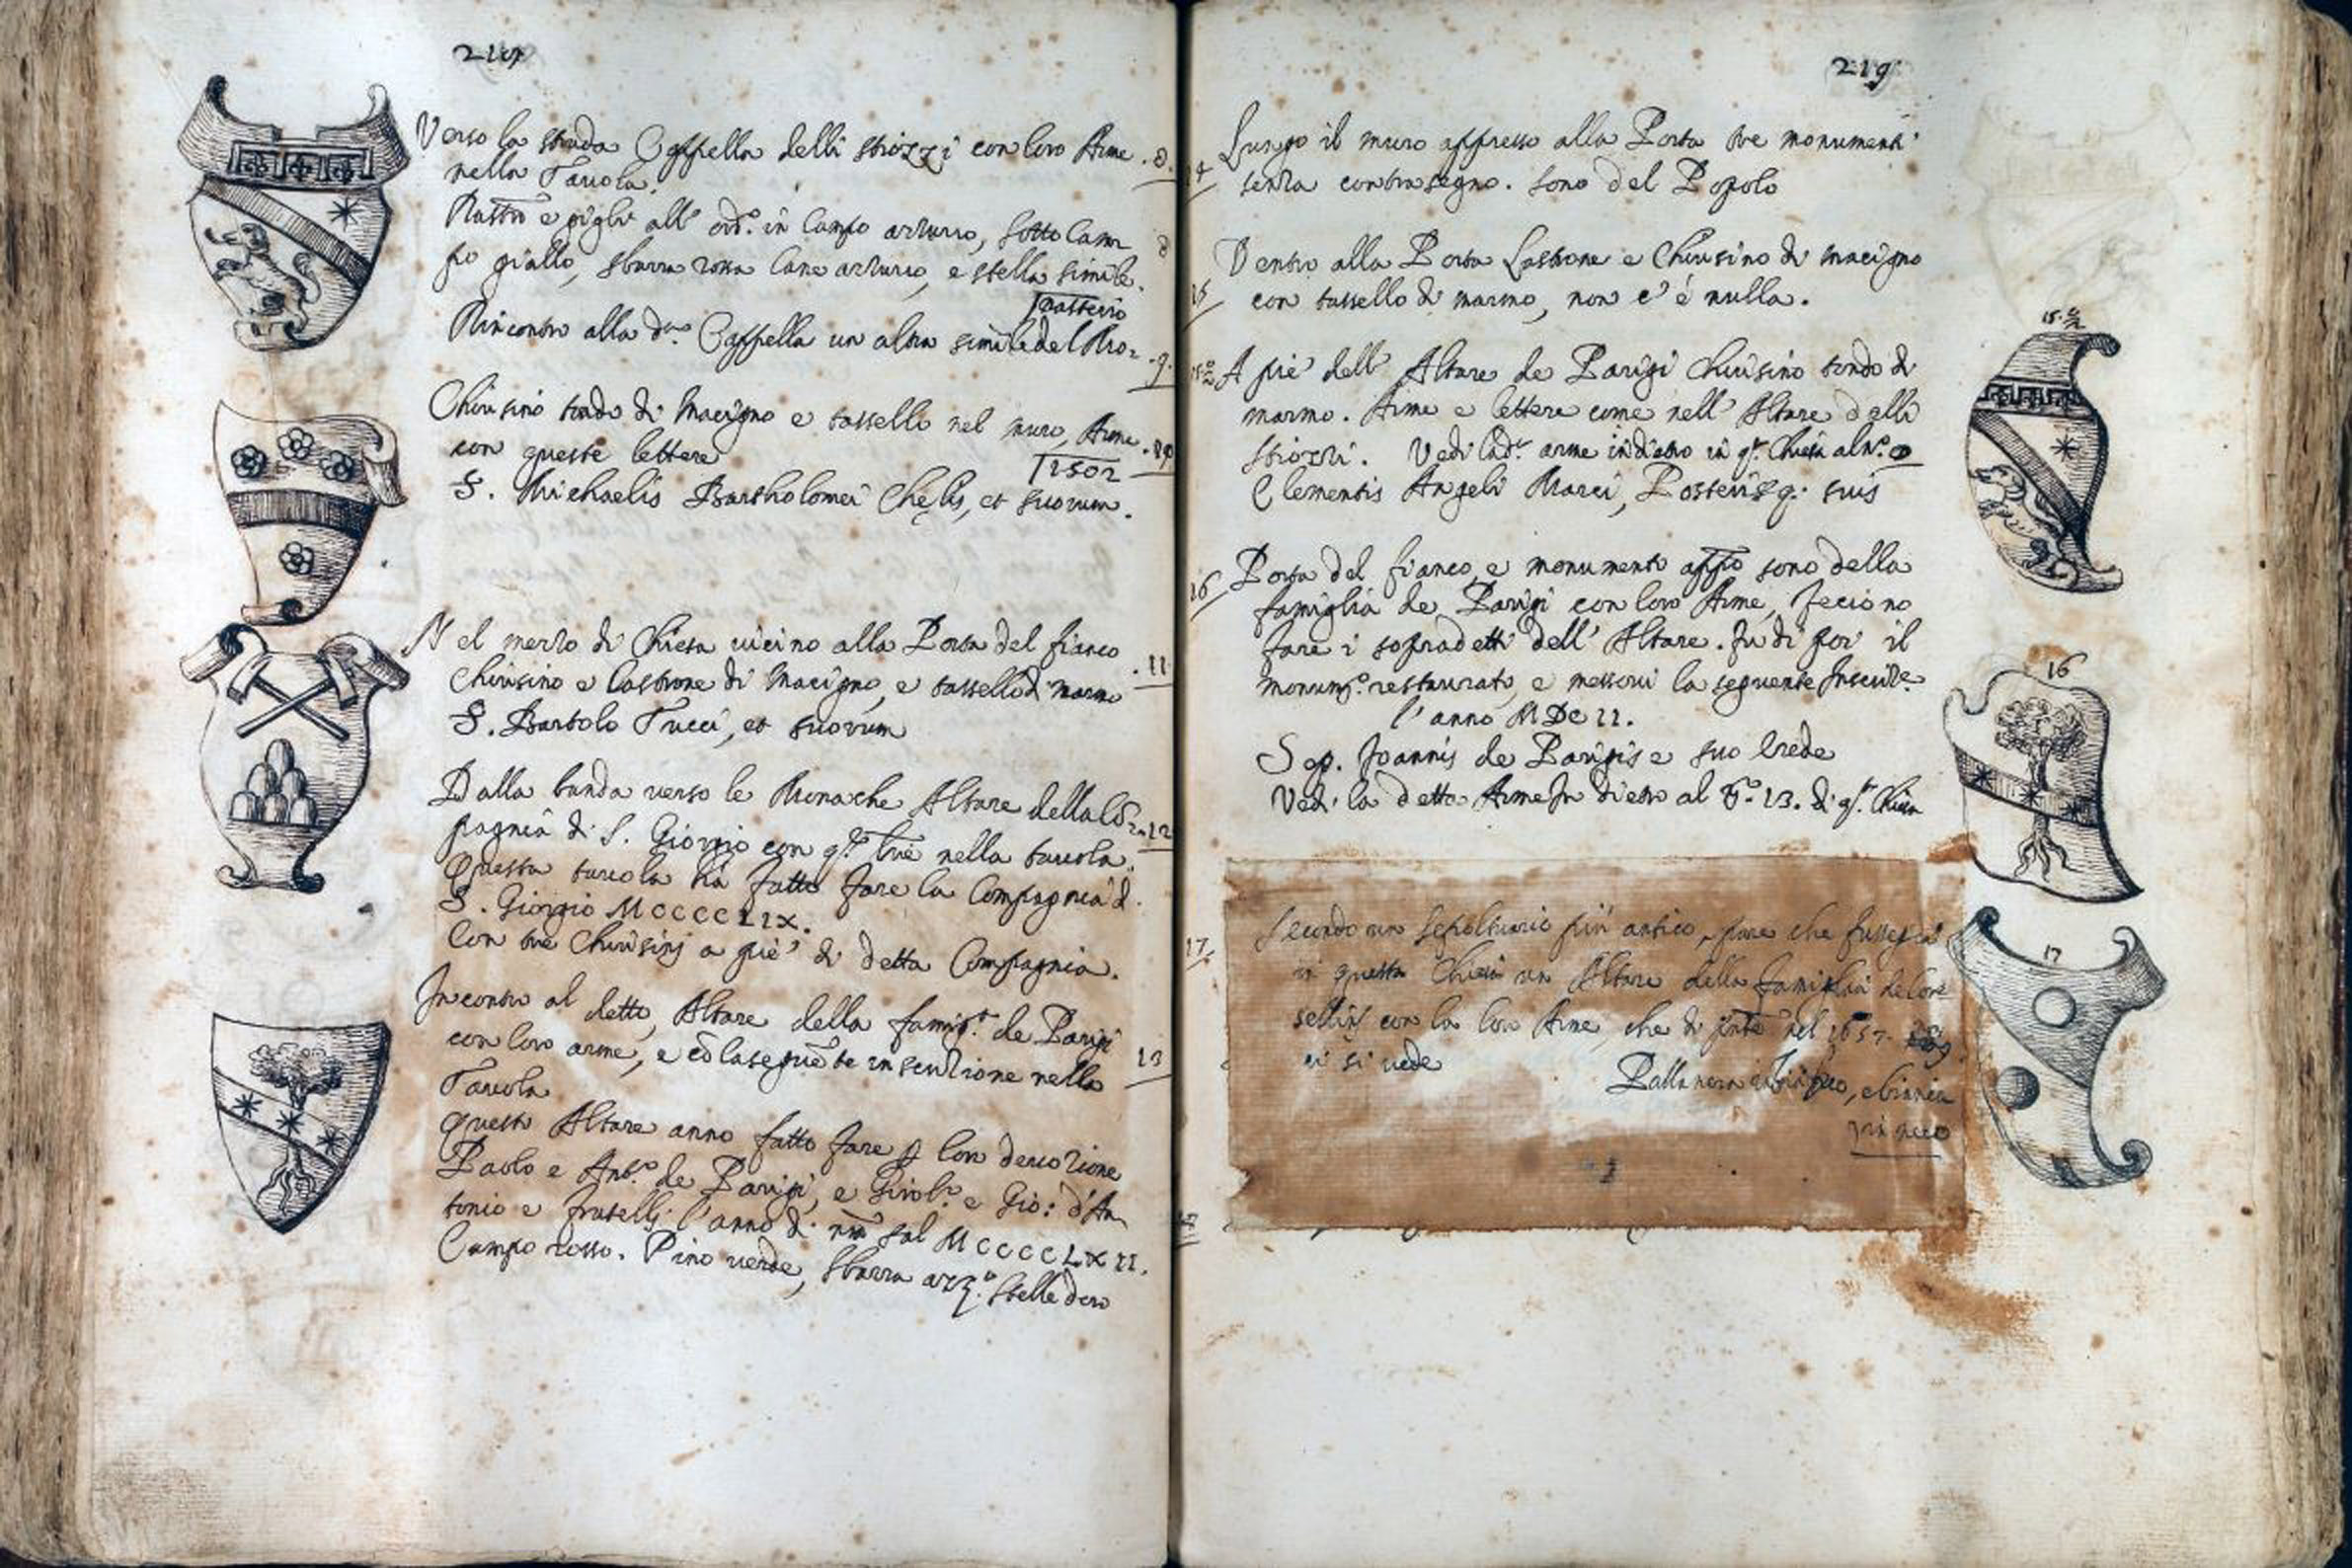 218
Verso la strada Cappella delli Stiozzi con loro Arme . 8.
nella Tauola.
Rastro e gigli all' ord.º in Campo azzurro, sotto Cam
po giallo, sbarra rossa Cane azzurro, e stella simile.
Monasterio
Rincontro alla d.ª Cappella un altra simile del . 9.
Chiusino tondo di Macigno e tassello nel muro, Arme . 10
con queste lettere
1502
S. Michaelis Bartholomei Chelis, et suorum.
Nel mezzo di Chiesa uicino alla Porta del fianco . 11
Chiusino e Lastrone di Macigno, e tassello di marmo
S. Bartolo Tucci, et suorum
Dalla banda uerso le Monache Altare della Cō= 12
pagnia di S. Giorgio con q.te lrē nella tauola.
Questa tauola hà fatto fare la Compagnia d.
S. Giorgio MCCCCLIX.
Con tre Chiusinj a piè di detta Compagnia.
Incontro al detto, Altare della famig.ª de Parigi
con loro arme, e cō la seguēte inscrizione nella 13
Tauola
Questo Altare anno fatto fare p lor deuozione
Paolo e Ant.º de Parigi, e Girol.º e Gio: d'An
tonio e fratellj l'anno di nrā sal MCCCCLXII.
Campo rosso. Pino uerde, Sbarra azz.ª Stelle d'oro
219
14 Lungo il muro appresso alla Porta tre monumenti
senza contrasegno. sono del Popolo
15 Dentro alla Porta Lastrone e Chiusino di macigno
con tassello di marmo, non c'è nulla.
15.½ A piè dell' Altare de Parigi Chiusino tondo di
marmo. Arme e lettere come nell' Altare delli
Stiozzi. Vedi la d.ª arme indietro in q.ª Chiesa al N.º 8
Clementis Angeli Marci, Posterisq. suis
16 Porta del fianco, e monumento app.º sono della
famiglia de Parigi con loro Arme, feciono
fare i sopradetti dell' Altare. Fu di poi il
monum.º restaurato, e messoui la seguente Inscriz.e
l'anno MDCII.
Sep. Joannis de Parigis e suo herede
Ved. la detta Arme In dietro al 13. di q.ª Chiesa
17. Secondo un sepoltuario più antico, pare che fusse già
in questa Chiesa un Altare della famiglia de Core
sellinj con la loro Arme, che di pnte nel 1657.
ui si uede
Palla nera in bianco, e bianca
in nero
15.½
16
17